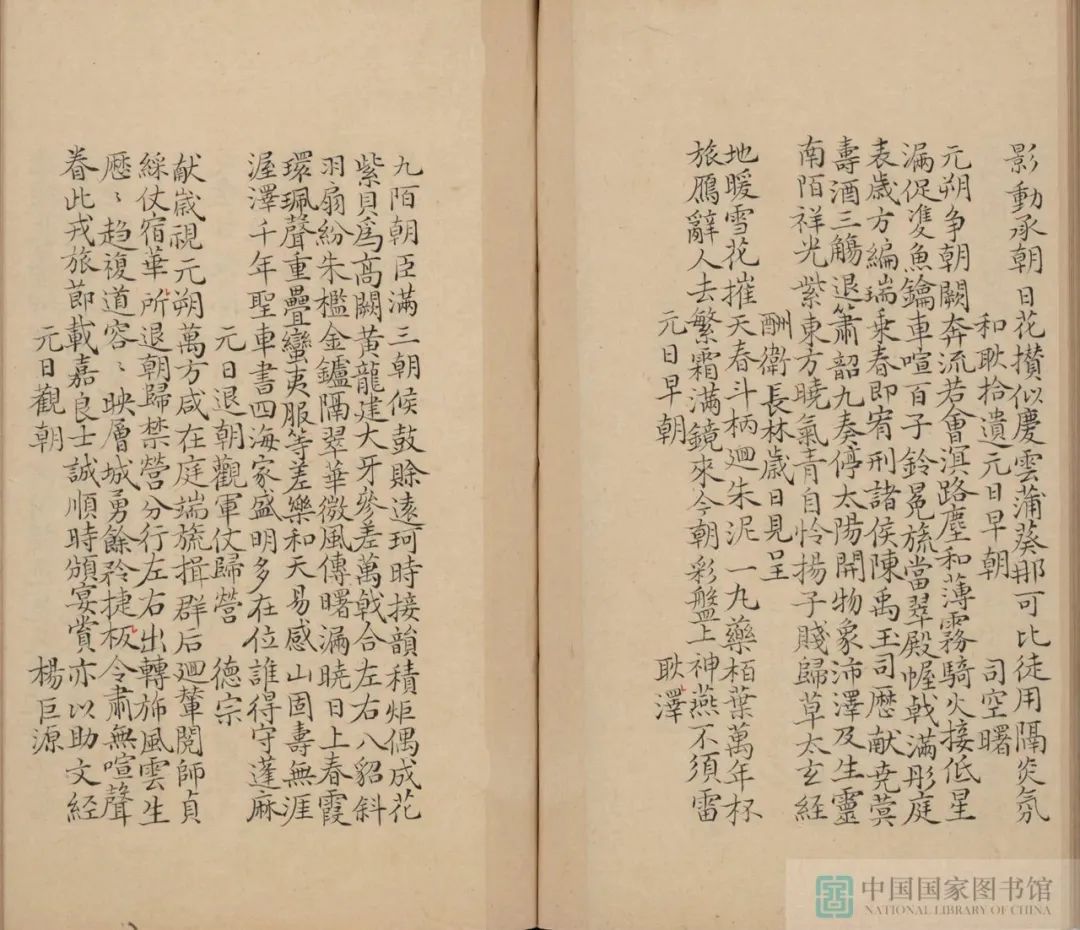 影動承朝日花攅似慶雲蒲葵那可比徒用隔炎氛
和耿拾遺元日早朝 司空曙
元朔争朝闕奔流若會溟路塵和薄霧騎火接低星
漏促㕠魚鑰車喧百子鈴冕旒當翠殿幄戟滿彤庭
表歳方編瑞乗春即宥刑諸侯陳禹玉司厯献尭蓂
夀酒三觴退簫韶九奏停太陽開物象沛澤及生靈
南陌祥光紫東方曉氣青自怜揚子賤歸草太玄経
酬衛長林歳日見呈
地暖雪花摧天春斗柄廻朱泥一九藥栢葉萬年杯
旅鴈辭人去繁霜滿鏡來今朝彩盤上神燕不須雷
元日早朝 耿澤
九陌朝臣滿三朝候鼓賖遠珂時接韻積炬偶成花
紫貝爲髙闕黄龍建大牙參差萬戟合左右八貂斜
羽扇紛朱檻金鑪隔翠華微風傳曙漏曉日上春霞
環珮聲重疊蠻夷服等差樂和天易感山固壽無涯
渥澤千年聖車書四海家盛明多在位誰得守蓬麻
元日退朝觀軍仗歸營 德宗
献嵗視元朔萬方咸在庭端旒揖群后廻輦閲師貞
綵仗宿華所退朝歸禁營分行左右出轉斾風雲生
厯〻趋複道容〻映層城勇餘矜捷板令肅無喧聲
眷此戎旅節載嘉良士誠順時頒宴賞亦以助文経
元日觀朝 楊巨源
中国国家图书馆
NATIONAL LIBRARY OF CHINA